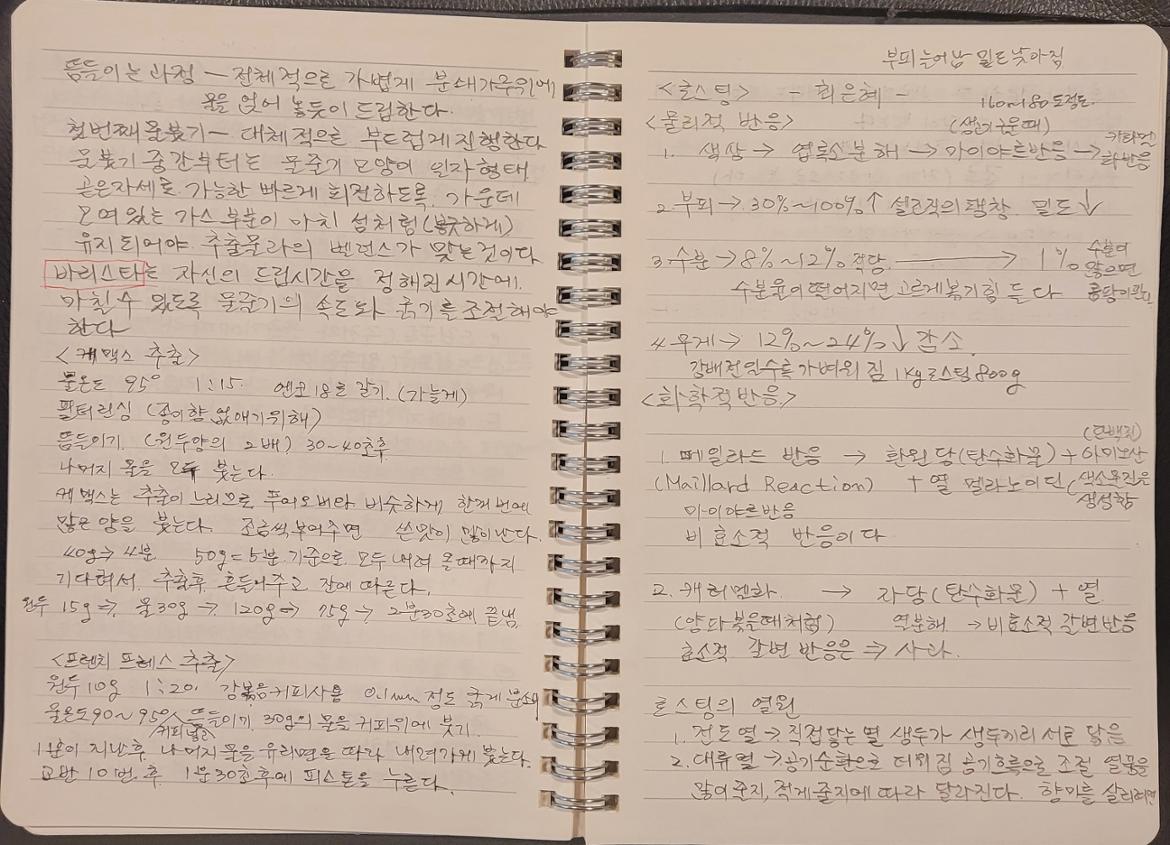 뜸들이는 과정 - 전체적으로 가볍게 분쇄가루위에
물을 얹어 놓듯이 드립한다.
첫번째물붓기 - 대체적으로 부드럽게진행한다
물붓기 중간부터는 물줄기 모양이 일자형태
곧은자세로 가능한 빠르게 회전하도록. 가운데
모여있는 가스부분이 마치 섬처럼(봉긋하게)
유지되어야. 추출물과의 벨런스가 맞는것이다
바리스타는 자신의 드립시간을 정해진시간에.
마칠수 있도록 물줄기의 속도와 굵기를 조절해야
한다
<케맥스 추출>
물온도 95° 1:15. 엔코18로 갈기.(가늘게)
필터린싱 (종이향 없애기위해)
뜸들이기. (원두양의 2배) 30~40초후
나머지 물을 모두 붓는다.
케맥스는 추출이 느리므로, 푸어오버랑 비슷하게 한꺼번에
많은 양을 붓는다. 조금씩 부어주면 쓴맛이 많이난다.
40g→4분 50g=5분 기준으로 모두 내려 올때까지
기다려서. 추출후. 흔들어주고 잔에 따른다.
원두 15g⇒. 물30g→ 120g⇒ 75g→ 2분30초에 끝냄
<프렌치 프레스 추출>
원두10g 1:20. 강볶음커피사용 0.1mm 정도 굵게 분쇄
물온도90~95° 뜸들이기. 30g의 물을 커피위에 붓기.
커피넣고
1분이 지난후 나머지물을 유리면을 따라 내려가게 붓는다.
교반 10번 후 1분30초후에 피스톤을 누른다.
부피늘어남 밀도낮아짐
<로스팅> - 최은혜 -
160~180도정도.
<물리적 반응> (생두구운때)
1. 색상 → 엽록소분해 → 마이야르반응 → 카라멜화반응
2. 부피→ 30%~100%↑ 셀조직의팽창. 밀도↓
3. 수분→8%~12%적당. → 1% 수분이 많으면
수분율이 떨어지면 고르게볶기힘든다
4. 무게→ 12%~24%↓ 감소.
강배전일수록 가벼워 짐 1Kg로스팅800g
<화학적반응>
(단백질)
1. 메일라드 반응 → 환원당(탄수화물) + 아미노산
(Maillard Reaction) + 열 멜라노이딘 (색소물질은 생성함
마이야르반응
비효소적 반응이다
2. 캐러멜화. → 자당(탄수화물) + 열
(양파볶을때처럼) 열분해. → 비효소적 갈변반응
효소적 갈변 반응은 ⇒ 사과.
로스팅의 열원
1. 전도열→직접닿는열 생두가 생두끼리 서로 닿음
2. 대류열→공기순환으로 데워짐 공기흐름으로 조절 열풍을
많이준지, 적게준지에 따라 달라진다. 향미를 살리려면